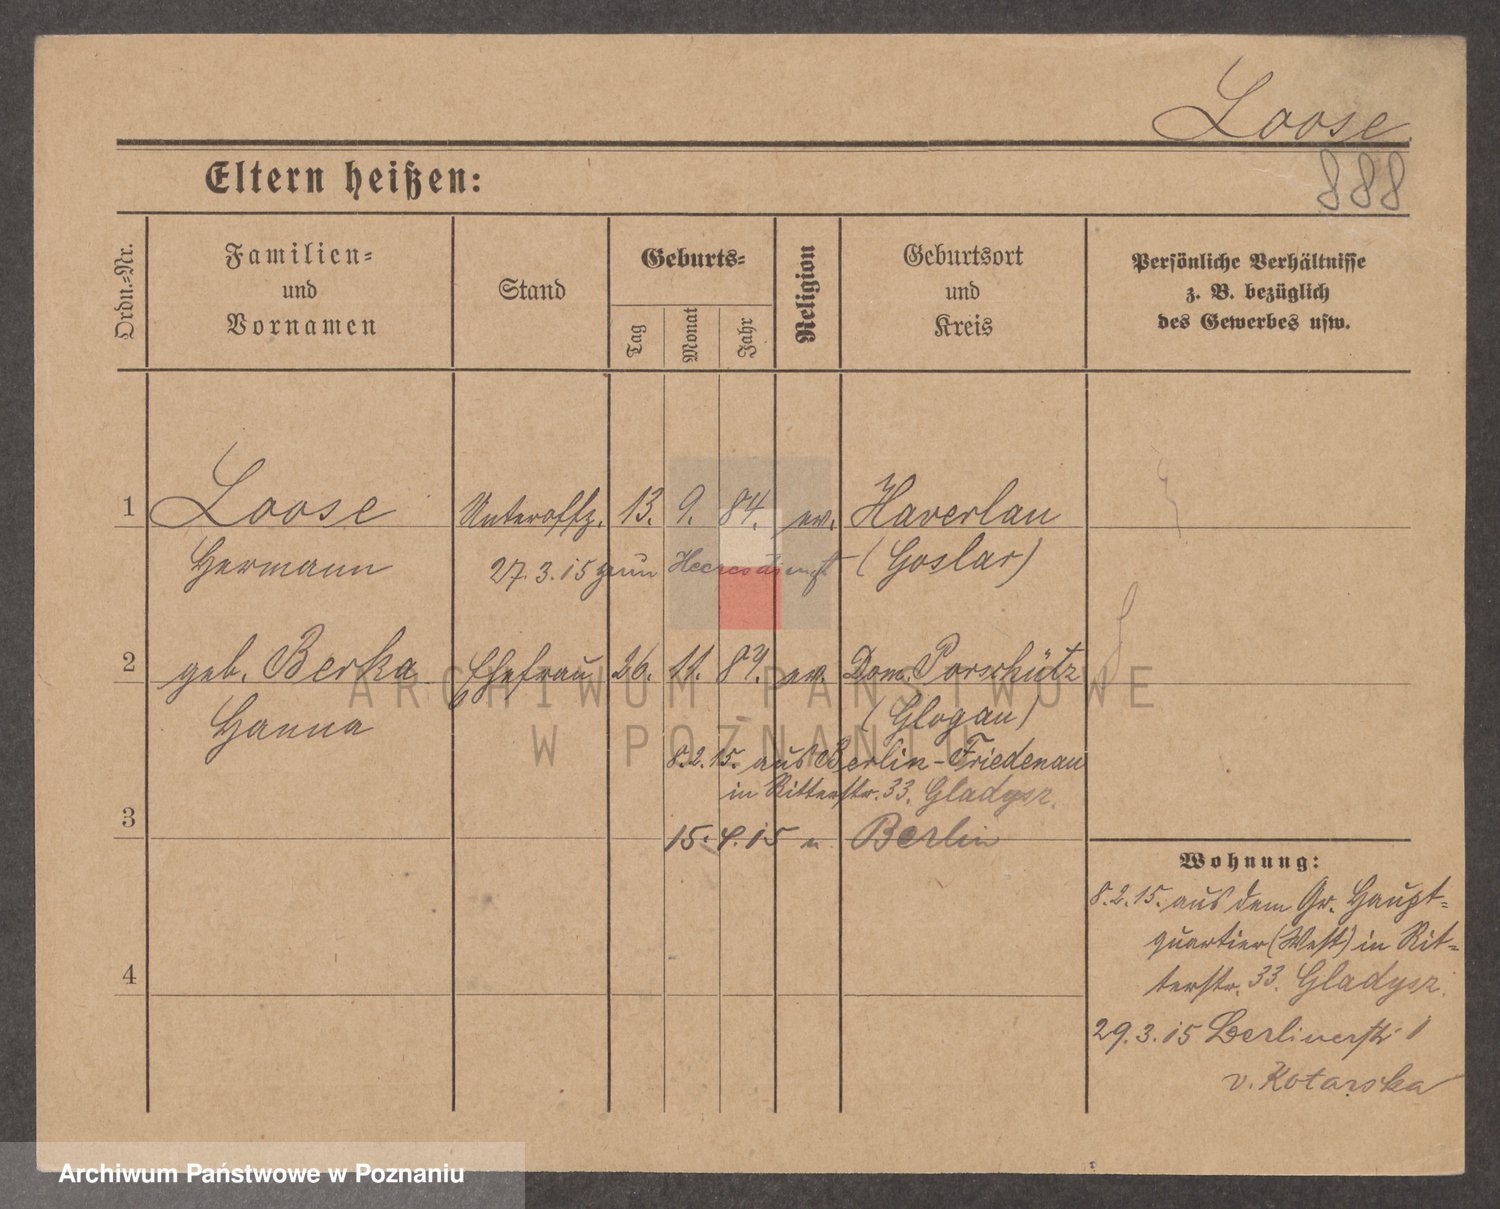 Loose
888
Eltern heißen:
Ordn.-Nr.
Familien-
und
Vornamen
Stand
Geburts-
Tag
Monat
Jahr
Religion
Geburtsort
und
Kreis
Persönliche Verhältnisse
z. B. bezüglich
des Gewerbes usw.
1 Loose Unteroffz. 13. 9. 84. ev. Haverlau
Hermann 27.3.15 zum Heeresdienst (Goslar)
2 geb. Berka Ehefrau 26. 11. 87. ev. Dom. Porschütz
Hanna (Glogau)
8.2.15. aus Berlin-Friedenau
in Ritterstr. 33. Gladysz.
3 15.4.15 n Berlin
Wohnung:
8.2.15. aus dem Gr. Haupt-
quartier (West) in Rit-
terstr. 33. Gladysz.
4
29.3.15 Berlinerstr 1
v. Kotarska
ARCHIWUM PAŃSTWOWE
W POZNANIU
Archiwum Państwowe w Poznaniu